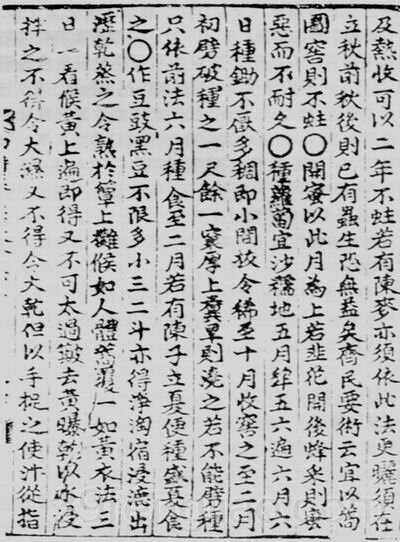 及熱收可以二年不蛀若有陳麥亦須依此法更曬須在
立秋前秋後則已有蟲生恐無益矣齊民要術云宜以蒿
國窖則不蛀〇開蜜以此月為上若韭花開後蜂采則蜜
惡而不耐久〇種蘿蔔宜沙糯地五月犁五六遍六月六
日種鋤不厭多稠即小間拔令稀至十月收窖之至二月
初劈破種之一尺餘一窠厚上糞旱則澆之若不能劈種
只依前法六月種食至二月若有陳子立夏便種盛夏食
之〇作豆豉黑豆不限多小三二斗亦得淨淘宿浸漉出
瀝乾蒸之令熟於簟上攤候如人體蒿覆一如黃衣法三
日一看候黃上遍即得又不可太過簸去黃曝乾以水浸
拌之不得令大濕又不得令大乾但以手捉之使汁從指